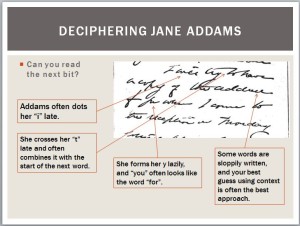 DECIPHERING JANE ADDAMS
Can you read
the next bit?
I will try to have
a copy of the address
for you when I come to
the reception on Thursday
Addams often dots
her “i” late.
She crosses her “t”
late and often
combines it with the
start of the next word.
She forms her y lazily,
and “you” often looks like
the word “for”.
Some words are
sloppily written,
and your best
guess using context
is often the best
approach.